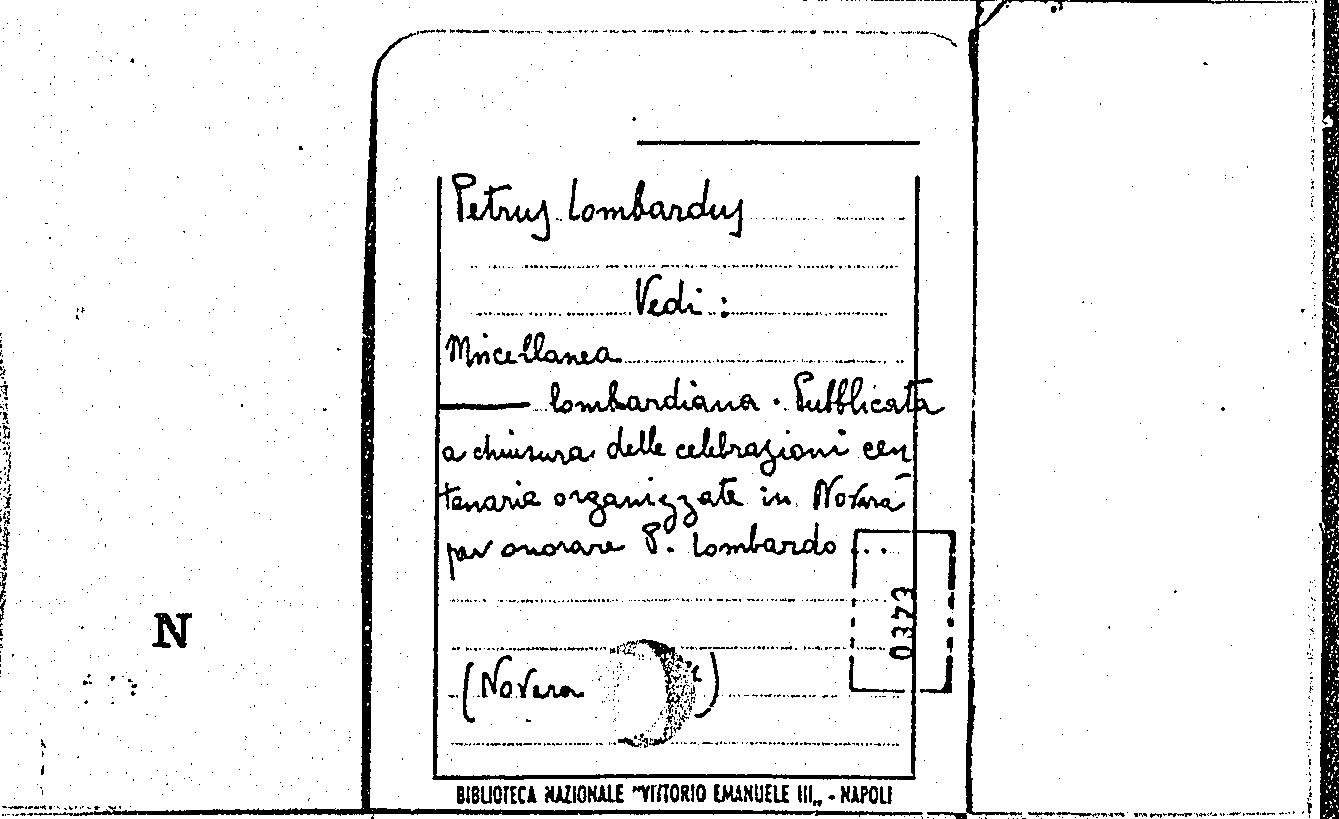 Petrus Lombardus
Vedi :
Miscellanea
lombardiana . Pubblicata
a chiusura delle celebrazioni cen
tenarie organizzate in Novara
per onorare P. Lombardo ...
0373
(Novara )
N
BIBLIOTECA NAZIONALE "VITTORIO EMANUELE III„ - NAPOLI